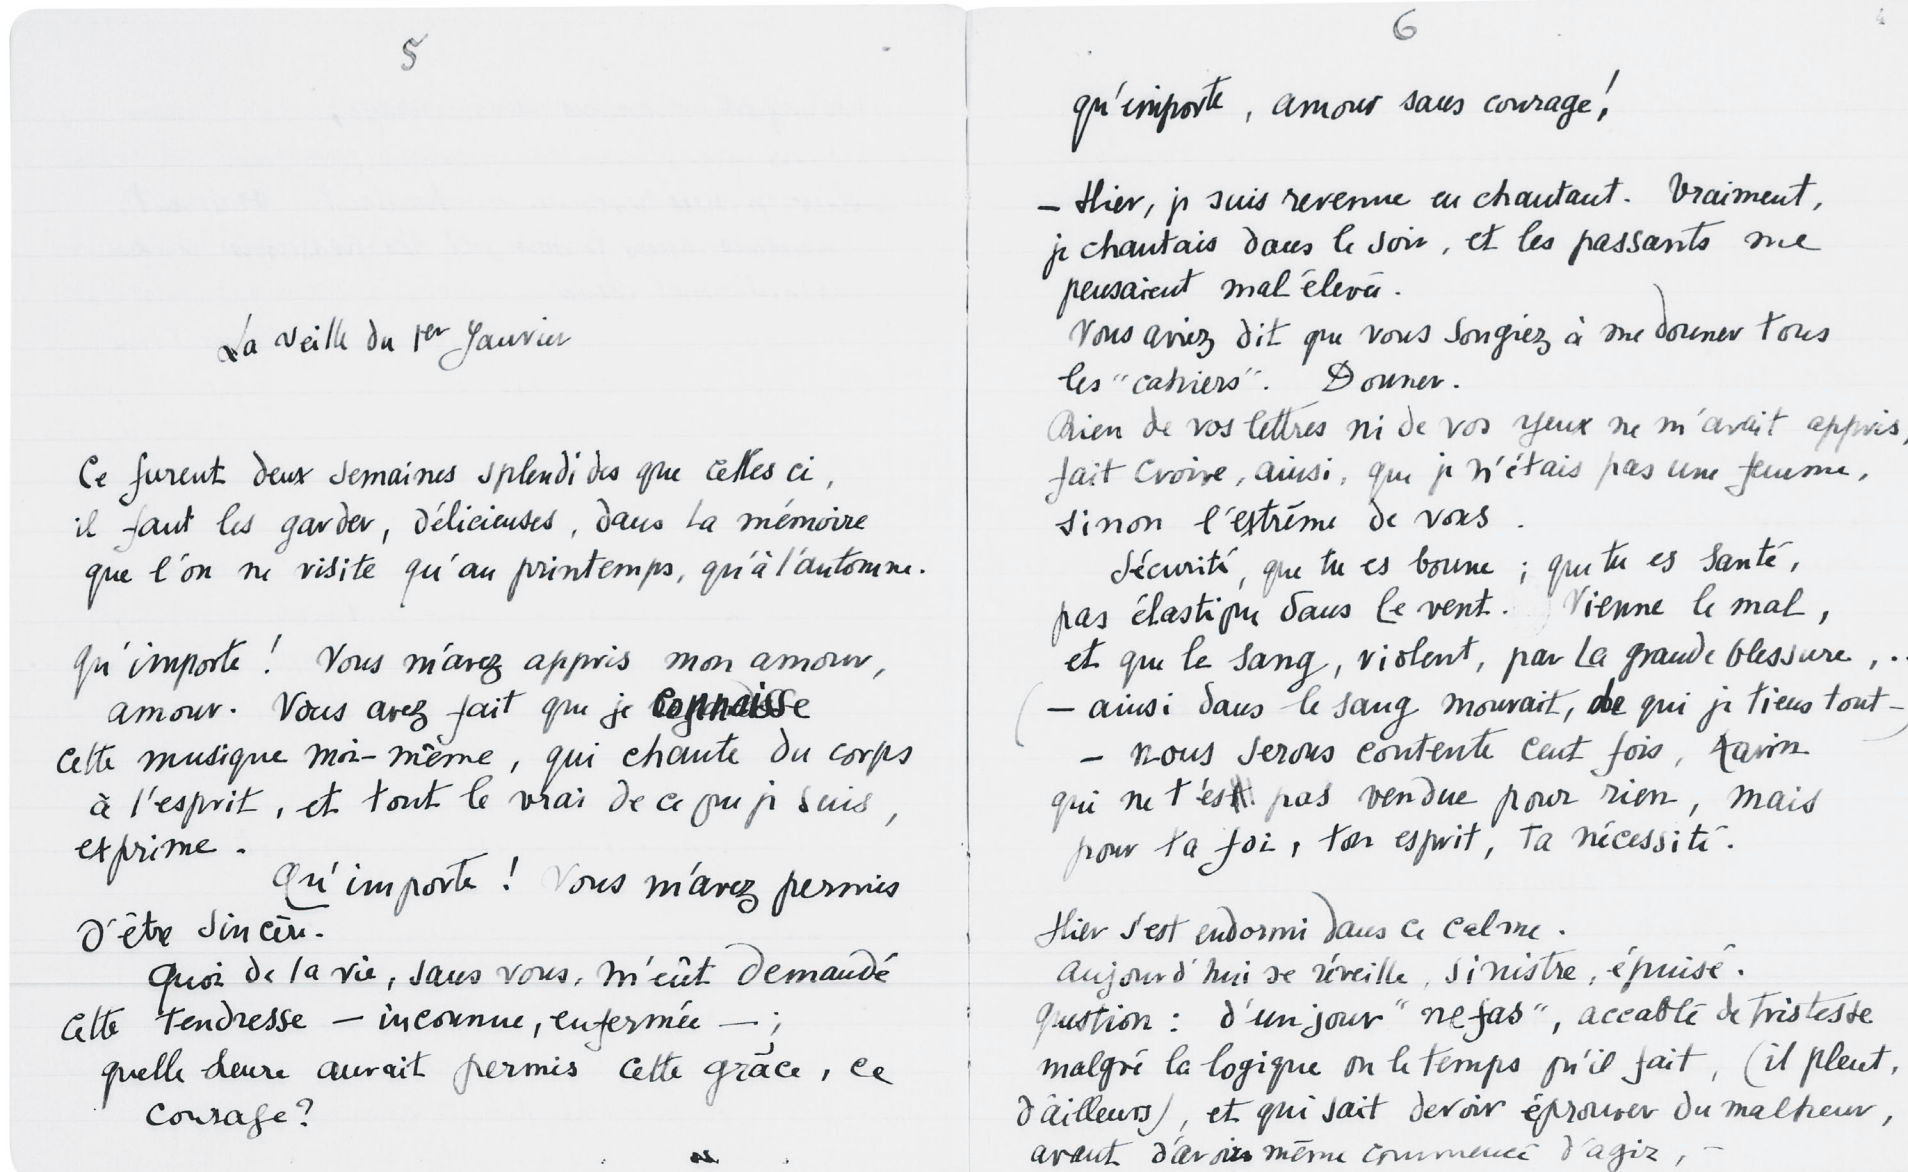 5
La veille du 1er Janvier
Ce furent deux semaines splendides que celles ci,
il faut les garder, délicieuses, dans la mémoire
que l'on ne visite qu'au printemps, qu'à l'automne.
qu'importe ! Vous m'avez appris mon amour,
amour. Vous avez fait que je connaisse
cette musique moi-même, qui chante du corps
à l'esprit, et tout le vrai de ce que je suis,
exprime.
Qu'importe ! Vous m'avez permis
d'être sincère.
Quoi de la vie, sans vous, m'eût demandé
cette tendresse — inconnue, enfermée — ;
quelle heure aurait permis cette grâce, ce
courage ?
6
qu'importe, amour sans courage !
— Hier, je suis revenue en chantant. Vraiment,
je chantais dans le soir, et les passants me
pensaient mal élevée.
Vous aviez dit que vous songiez à me donner tous
les "cahiers". Donner.
Rien de vos lettres ni de vos yeux ne m'avait appris,
fait croire, ainsi, que je n'étais pas une femme,
sinon l'extrême de vous.
Sécurité, que tu es bonne ; que tu es santé,
pas élastique dans le vent. Vienne le mal,
et que le sang, violent, par la grande blessure, ..
(— ainsi dans le sang mourait, de qui je tiens tout —)
— nous serons contente cent fois,
qui ne t'es pas vendue pour rien, mais
pour ta foi, ton esprit, ta nécessité.
Hier s'est endormi dans ce calme.
aujourd'hui se réveille, sinistre, épuisé.
question : d'un jour "nefas", accablé de tristesse
malgré la logique ou le temps qu'il fait, (il pleut,
d'ailleurs), et qui sait devoir éprouver du malheur,
avant d'avoir même commencé d'agir, —